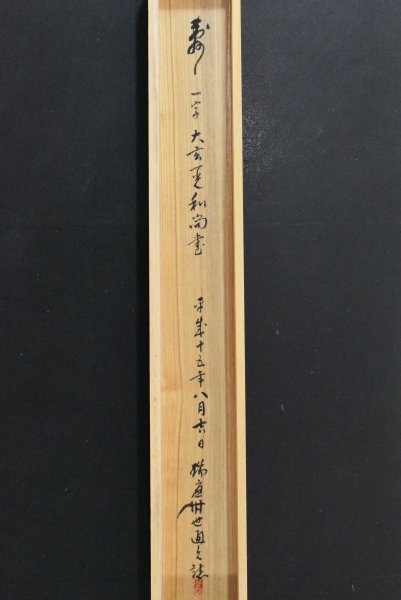 壽 一字 大玄 和尚書
平成十五年八月吉日 瑞應 世 誌